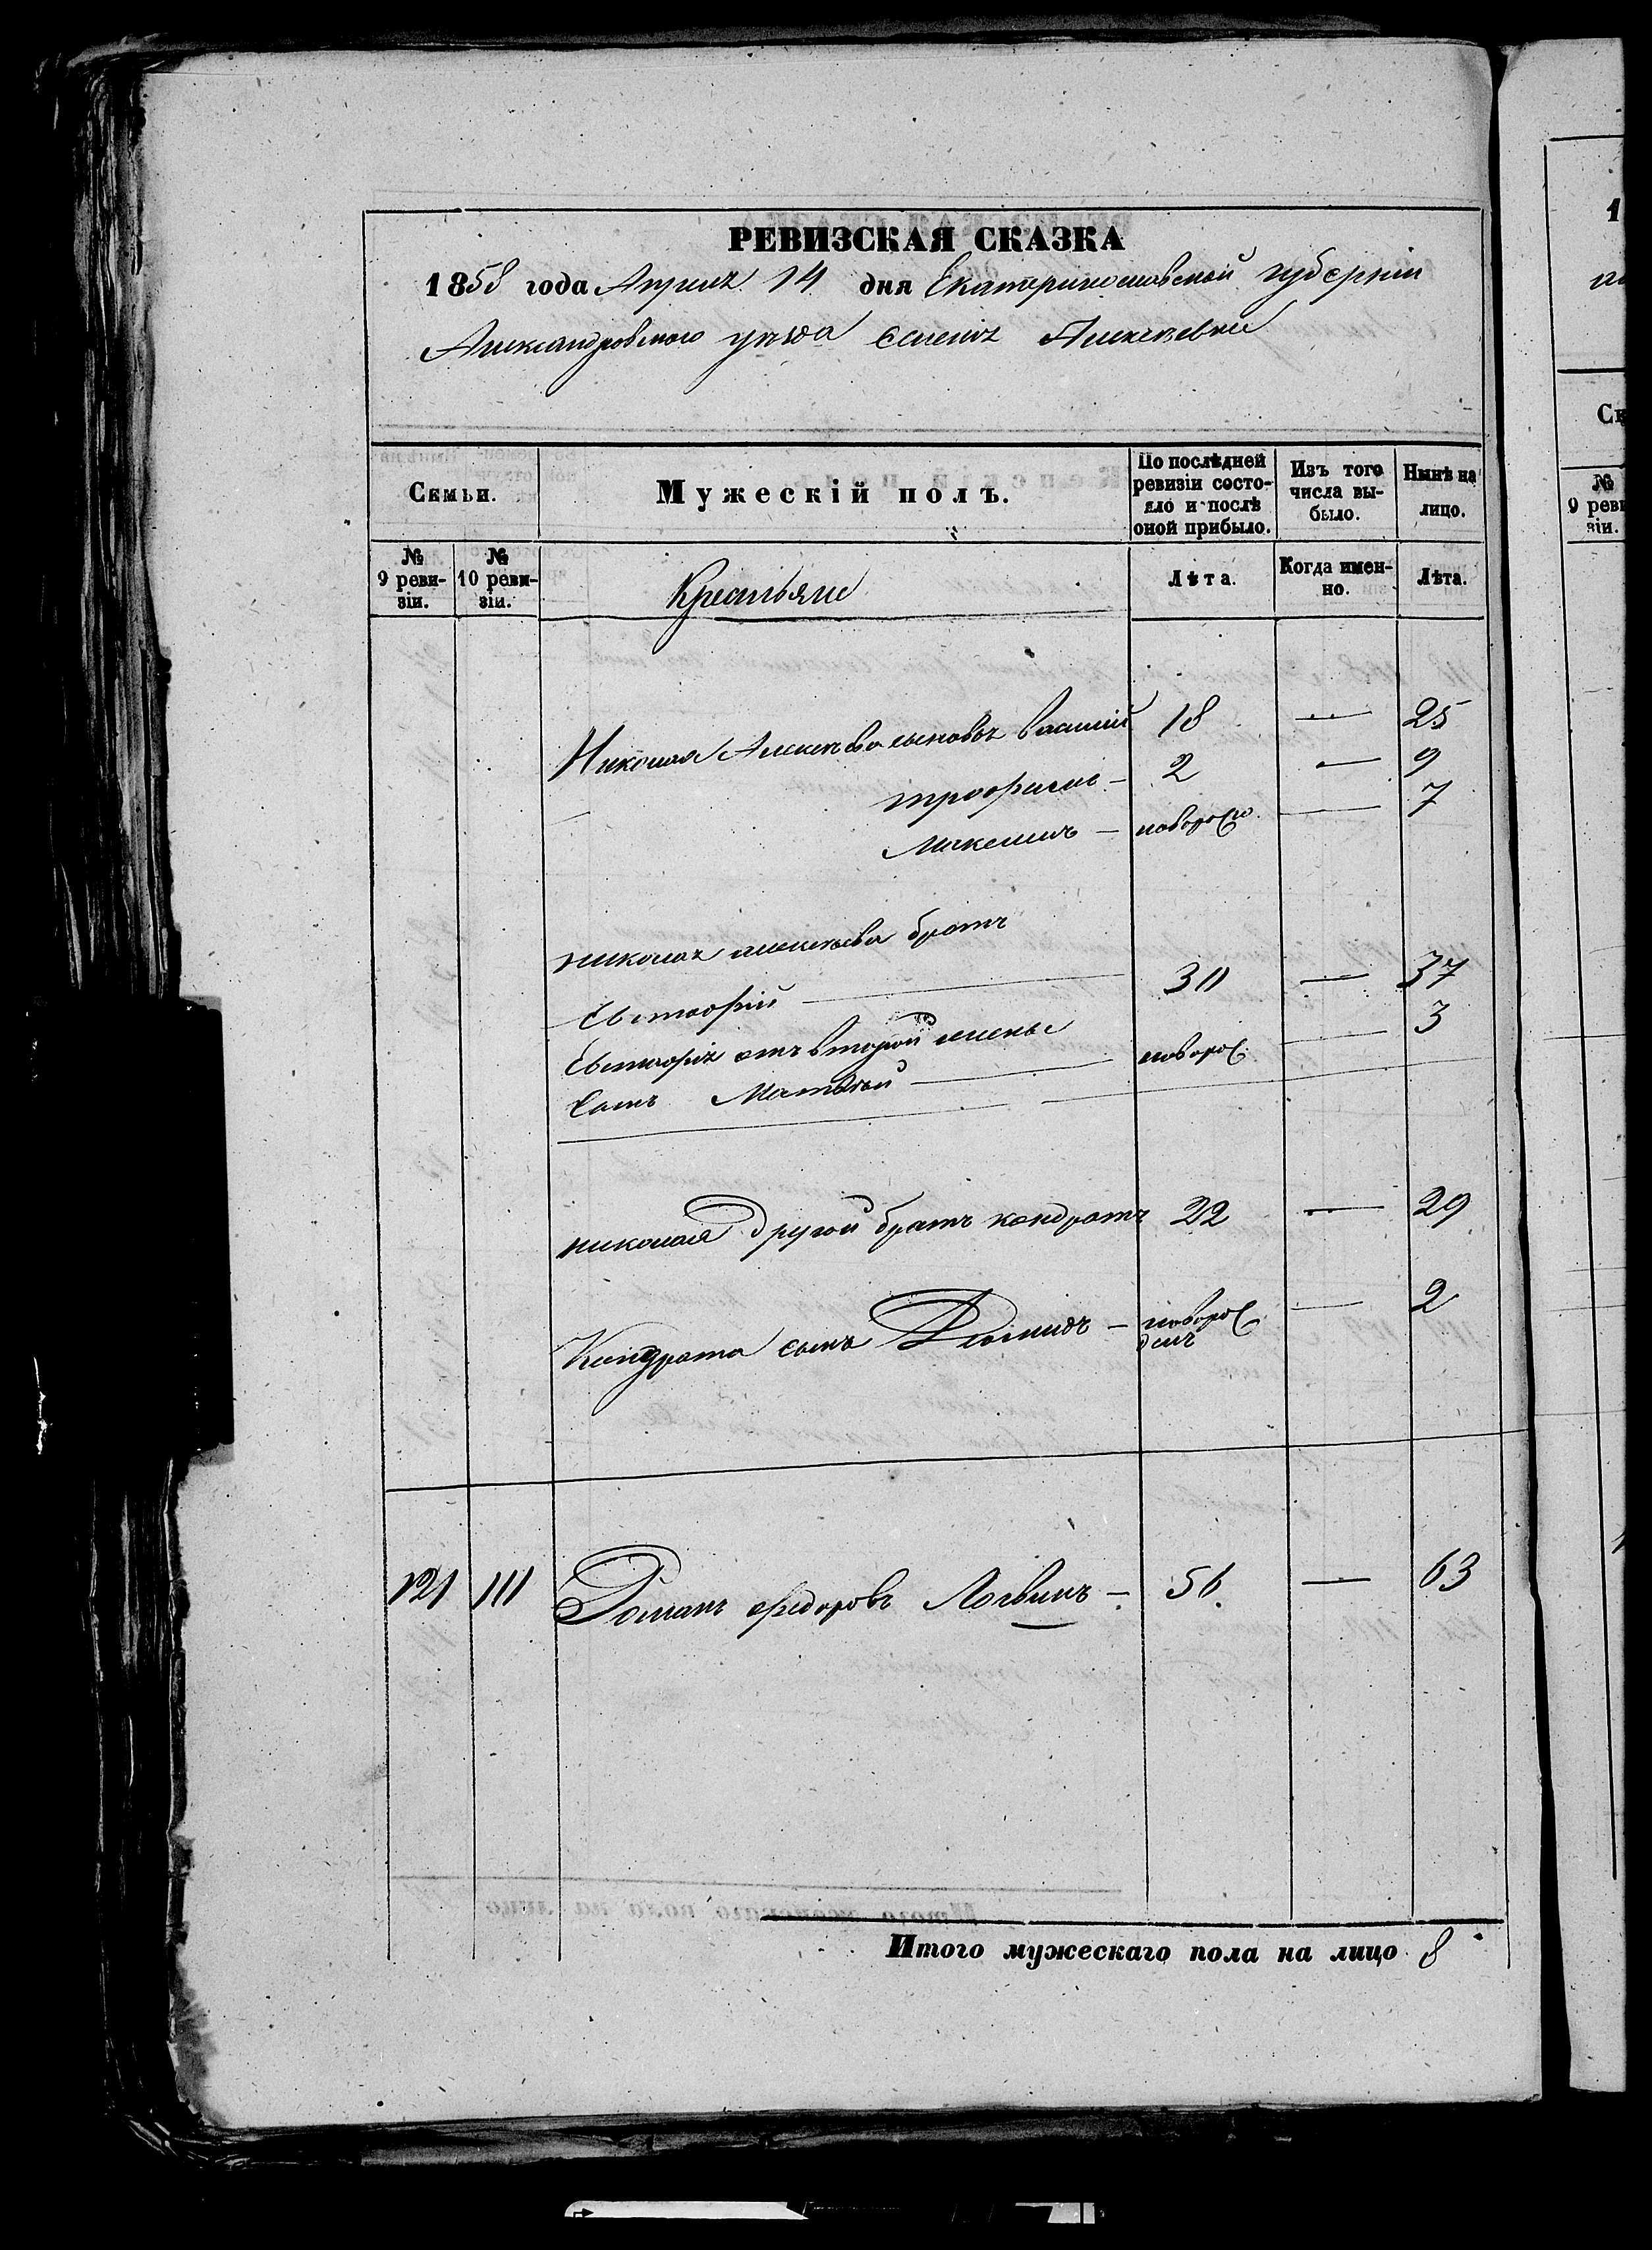 РЕВИЗСКАЯ СКАЗКА
1858 года Апреля 14 дня Екатеринославской губерніи
Александровского уезда селенія Алексѣевки
Семьи.
Мужескій полъ.
По послѣдней ревизіи состояло и послѣ оной прибыло.
Изъ того числа выбыло.
Нынѣ на лицо.
№ 9 ревизіи.
№ 10 ревизіи.
Крестьяне
Лѣта.
Когда именно.
Лѣта.
Николая Алексѣева сыновья Василий 18 — 25
трофимъ — 2 — 9
Максимъ — новорож — 7
николая алексѣева братъ
Евстафій — 30 — 37
Евстафія отъ второй жены
сынъ Матвѣй — новорож. — 3
николая другой братъ кондратъ 22 — 29
Кондрата сынъ Демидъ — новорож — 2
денъ
121 111 Романъ федоровъ Логвинъ — 56. — 63
Итого мужескаго пола на лицо 8
1
Се
№
9 реви
зіи.